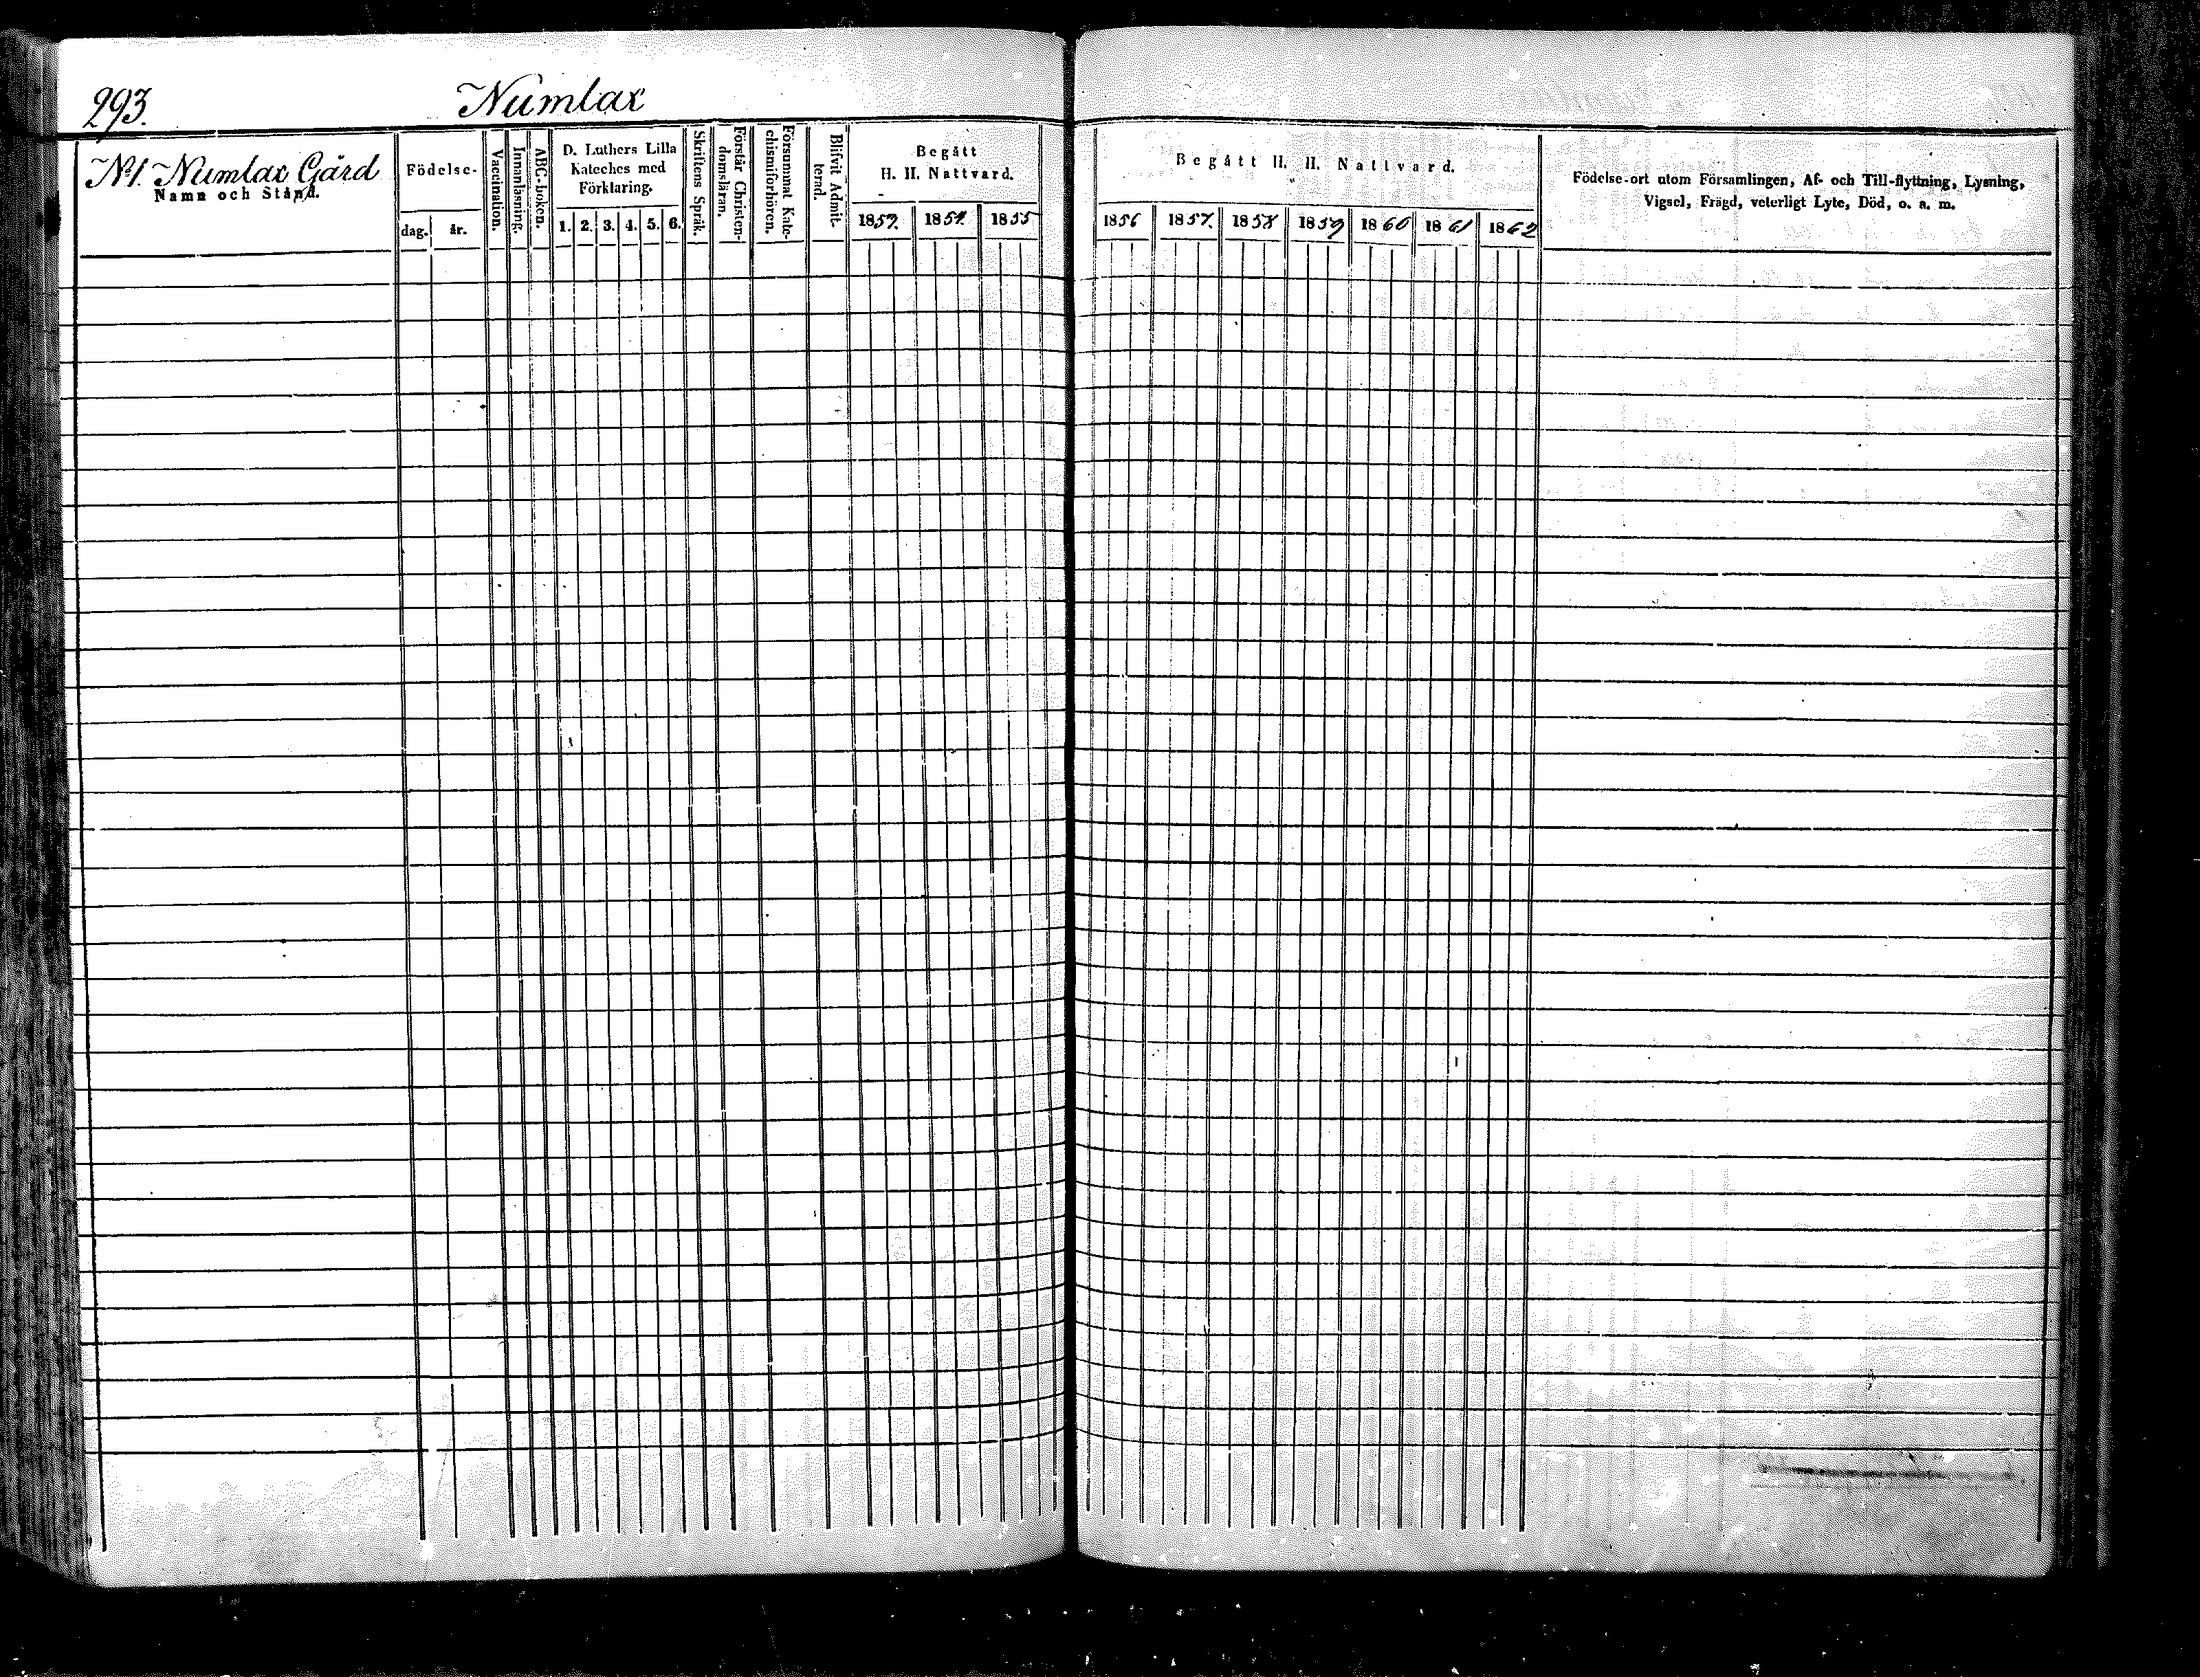 293.
Numlax
No 1. Numlax Gård
Namn och Stånd.
Födelse-
dag.
år.
Vaccination.
Innanläsning.
ABC-boken.
D. Luthers Lilla
Kateches med
Förklaring.
1. 2. 3. 4. 5. 6.
Skriftens Språk.
Förstår Christen-
domsläran.
Försummat Kate-
chismiförhören.
Blifvit Admit-
terad.
Begått
H. H. Nattvard.
1853. 1854. 1855
Begått H. H. Nattvard.
1856 1857. 1858 1859 1860 1861 1862
Födelse-ort utom Församlingen, Af- och Till-flyttning, Lysning,
Vigsel, Frägd, veterligt Lyte, Död, o. a. m.